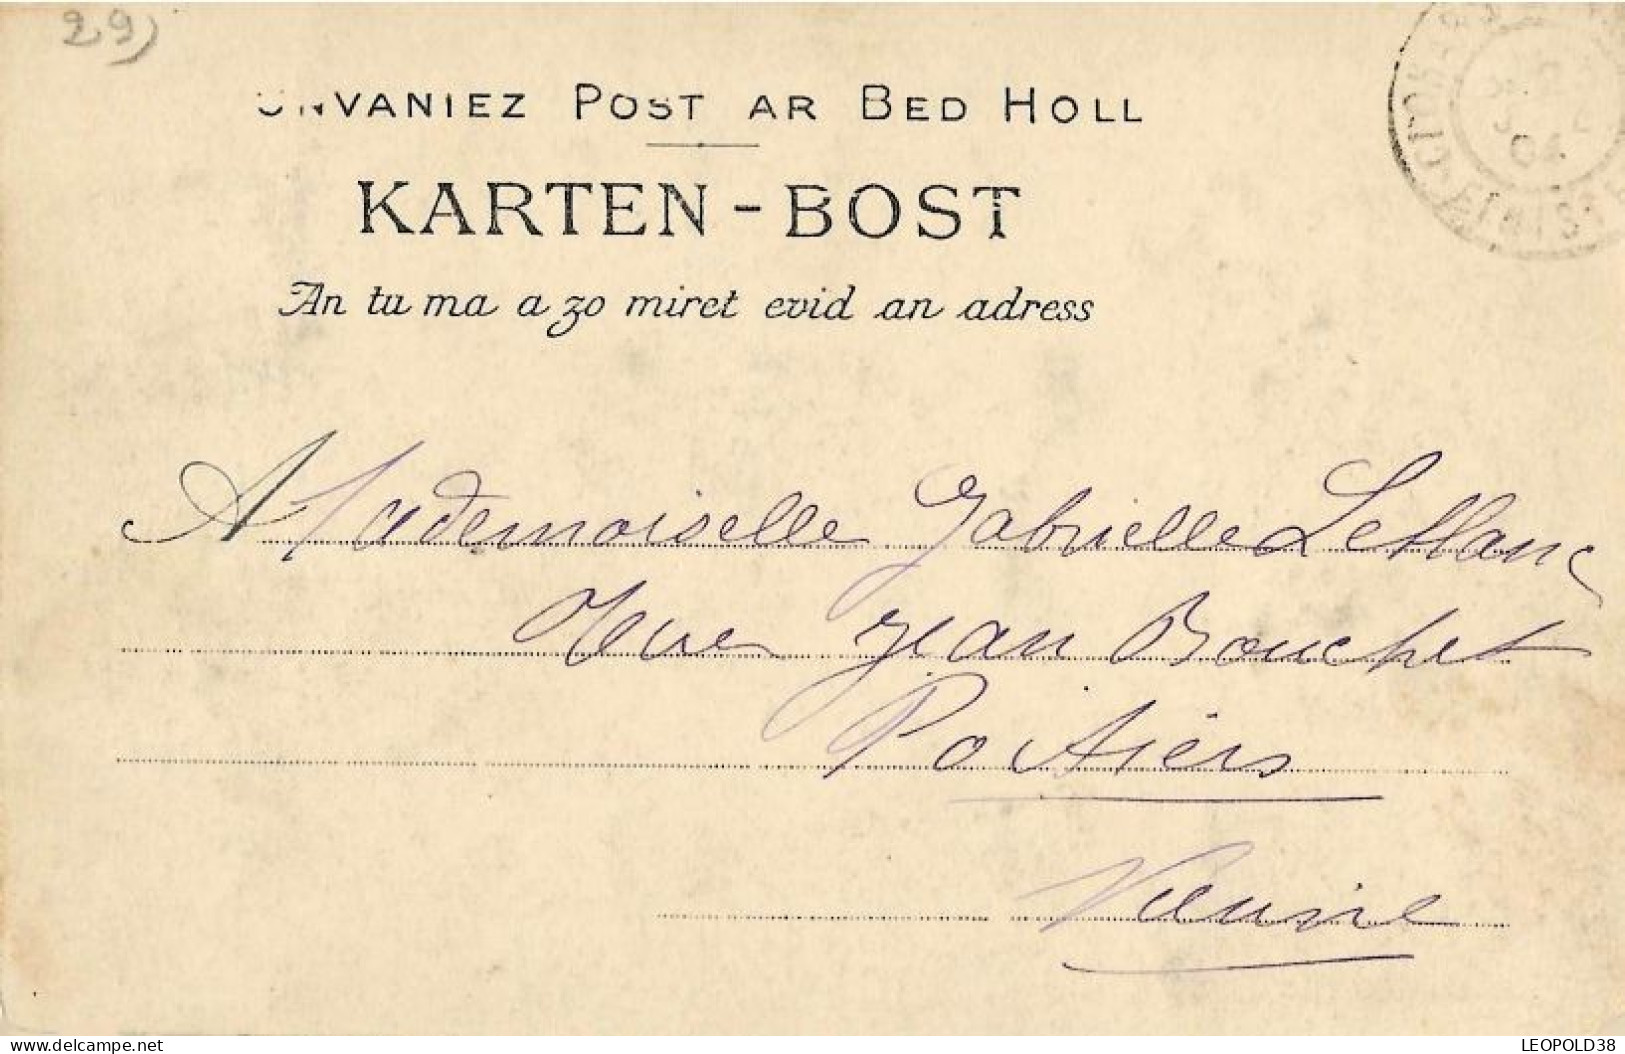 29)
UNVANIEZ POST AR BED HOLL
KARTEN-BOST
An tu ma a zo miret evid an adress
A Mademoiselle Gabrielle Leblanc
Rue Jean Bouchet
Poitiers
Vienne
04
LEOPOLD38